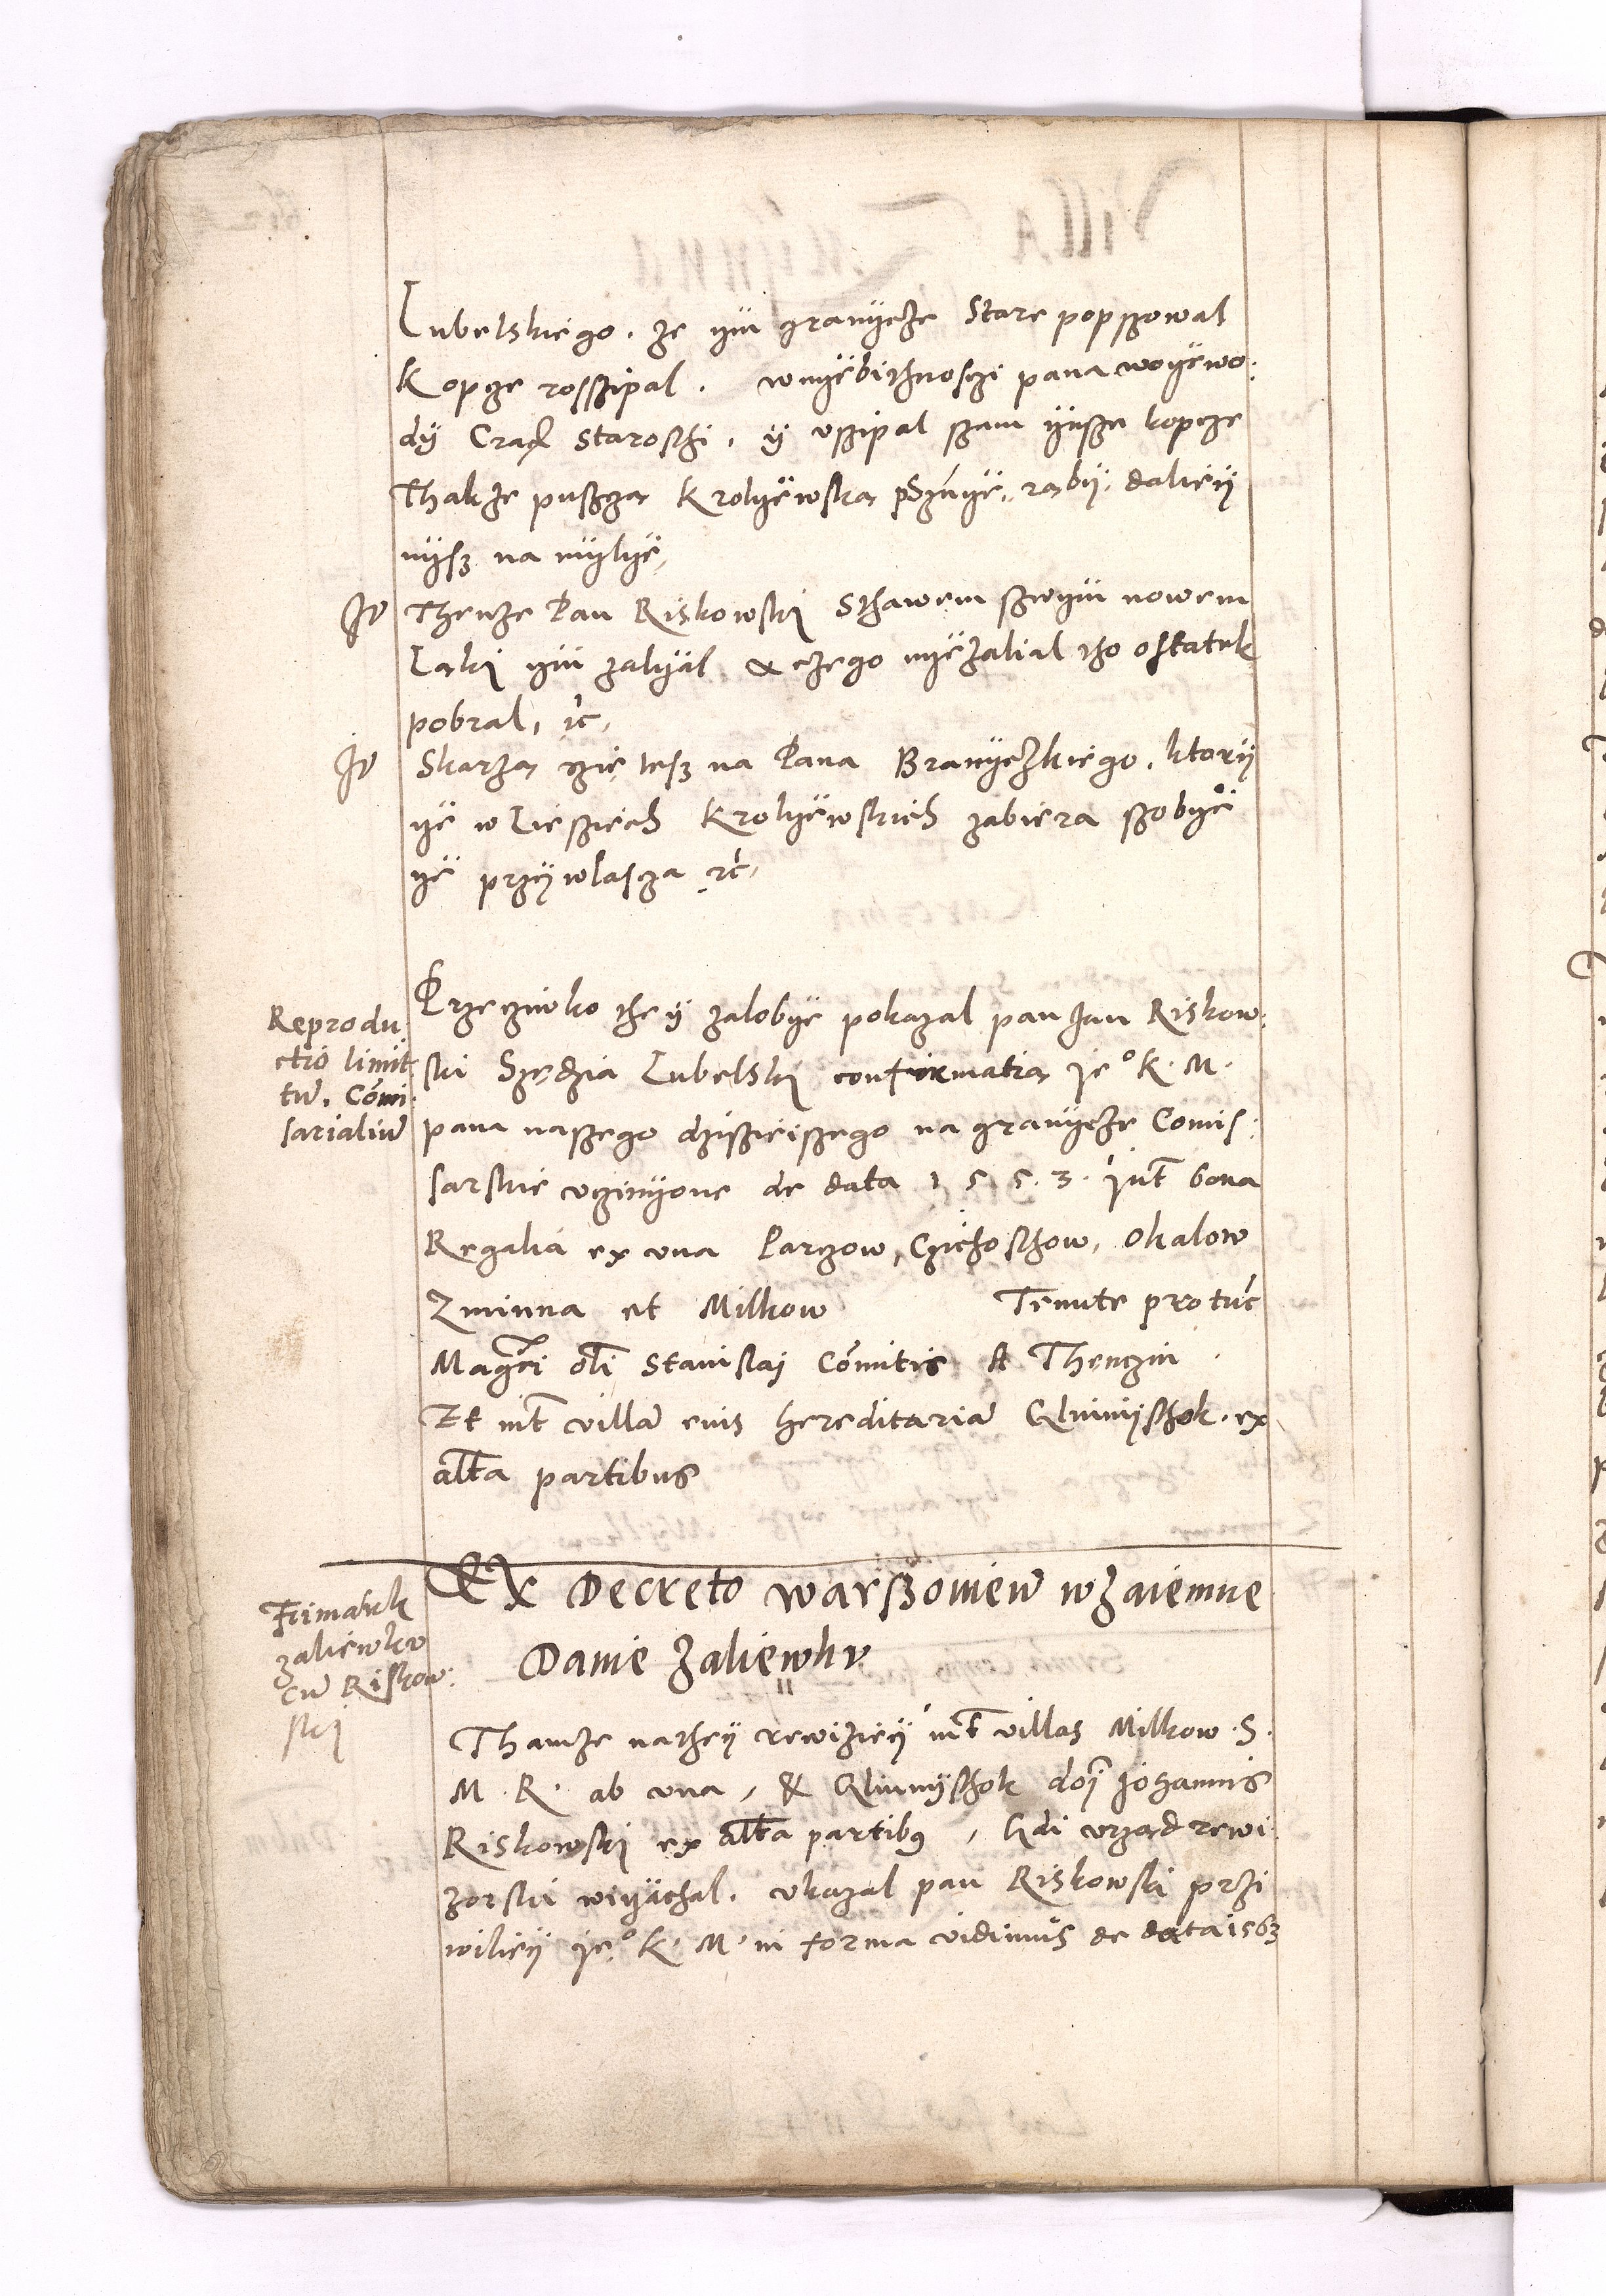 Lubelskiego. że ym granycże Stare popszował
Kopcze rosszipał. wnyebithnosczi pana woyewo:
dy Crac Starosthi. y vszipał szam ynsze kopcze
Thakże pusczą Krolyewską rąby, daliey
nysz na mylye,
It Thenże Pan Riskowski Sthawem szwym nowem
Ląki ym zalyał & czego nyezalial tho ostatek
pobrał, etc,
It Skarżą szie tesz na Pana Branyczkiego. ktory
ye w Liesziech Krolyewskich zabiera szobye
ye przywlascza etc,
Reprodu
ctio limit
tum. Comi
sarialium
Przecziwko they załobye pokazał pan Jan Riskow:
ski Szędzia Lubelski confirmatią je° K. M.
pana naszego dziszieiszego na granycże Comis:
sarskie vczinyone de data 1553. int bona
Regalia ex vna Parczow, Czichosthow, Okalow
Zminna et Milkow Tenute pro tunc
Magci oli Stanislaj Comitis A Thenczin.
Et int villam eius hereditariam Glinnysthok. ex
altera partibus
Frimark
zaliewku
cum Riskow:
ski
Ex Decreto warszoviem wzaiemne
Danie Zaliewku
Thamże nathey rewiziey int villas Milkow. S.
M. R. ab vna, & Glinnysthok doi Johannis
Riskowski ex altera partibus, Gdi vrząd rewi
zorski wiyachał. vkazał pan Riskowski przi
wiliey je° K. M. in forma vidimus de data 1563